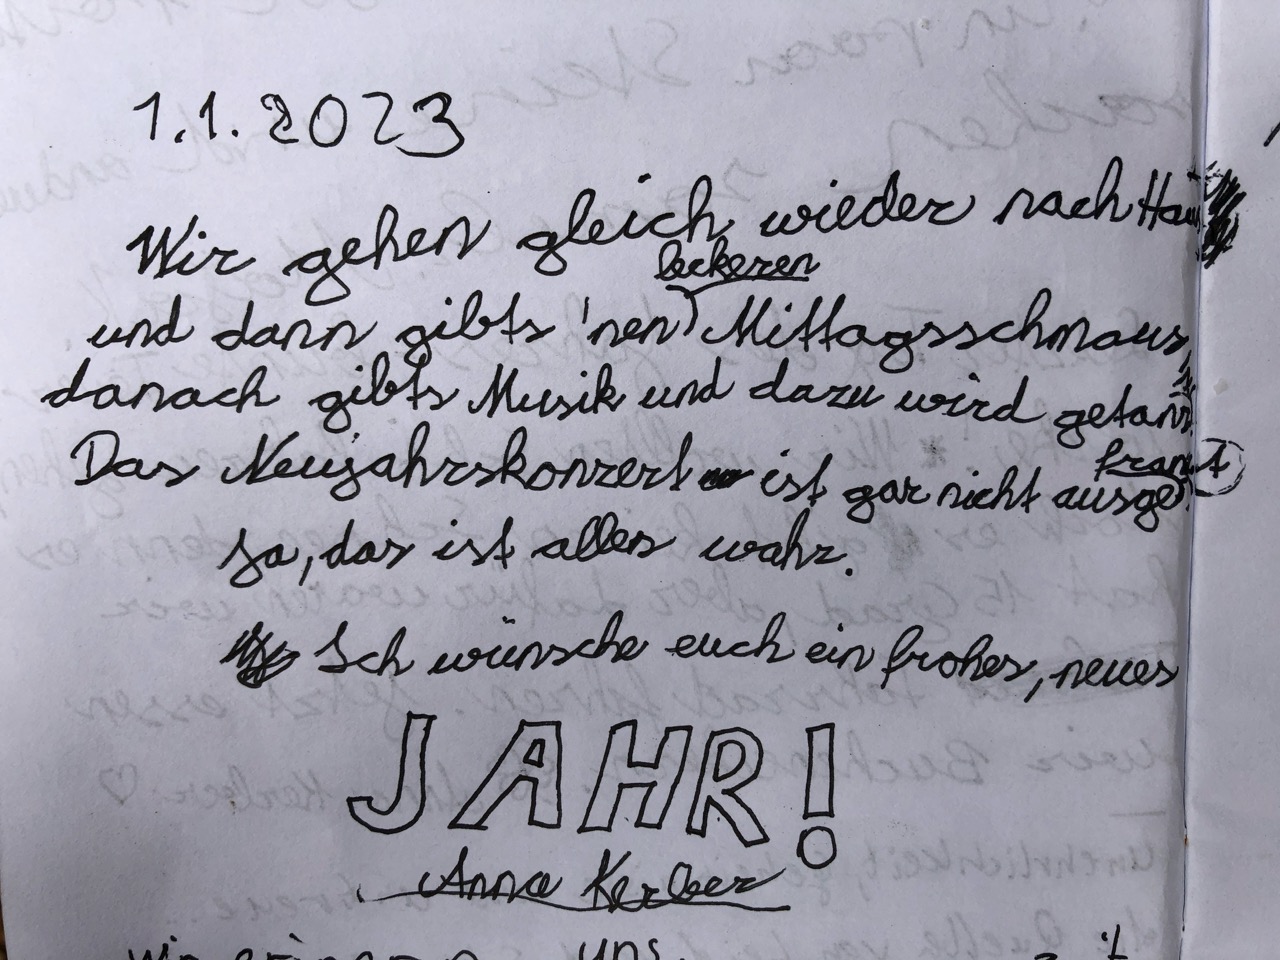 1.1.2023
Wir gehen gleich wieder nach Haus
leckeren
und dann gibts 'nen Mittagsschmaus,
danach gibts Musik und dazu wird getanzt.
Das Neujahrskonzert ist gar nicht ausge
franst
Ja, das ist alles wahr.
Ich wünsche euch ein frohes, neues
JAHR!
Anna Kerber
uns.